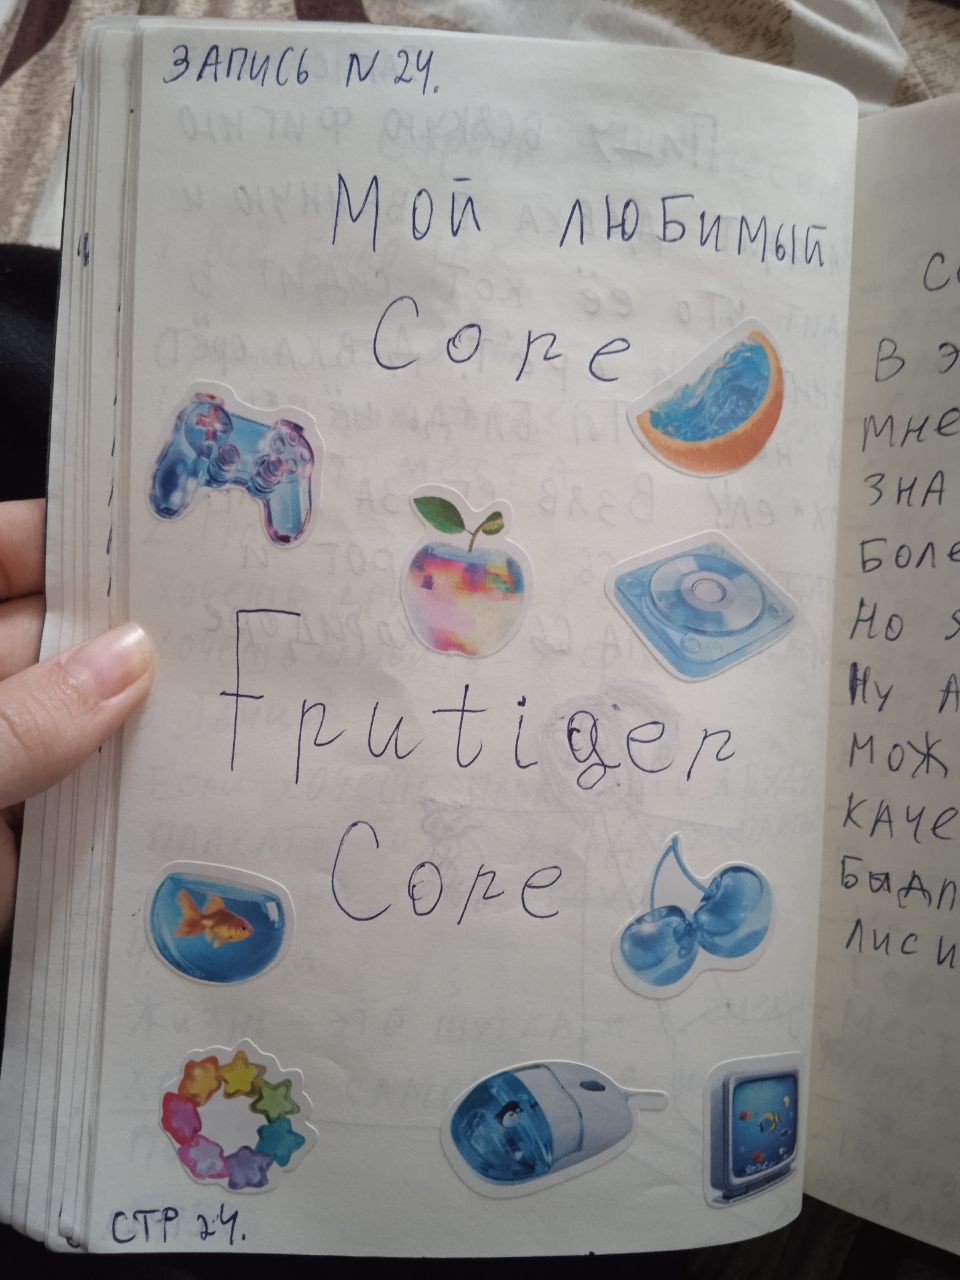 ЗАПИСЬ N 24.
Мой любимый
Core
Frutiger
Core
СТР 24.
В Э
мне
ЗНА
БОЛЕ
Но я
Ну А
МОЖ
КАЧЕ
лиси